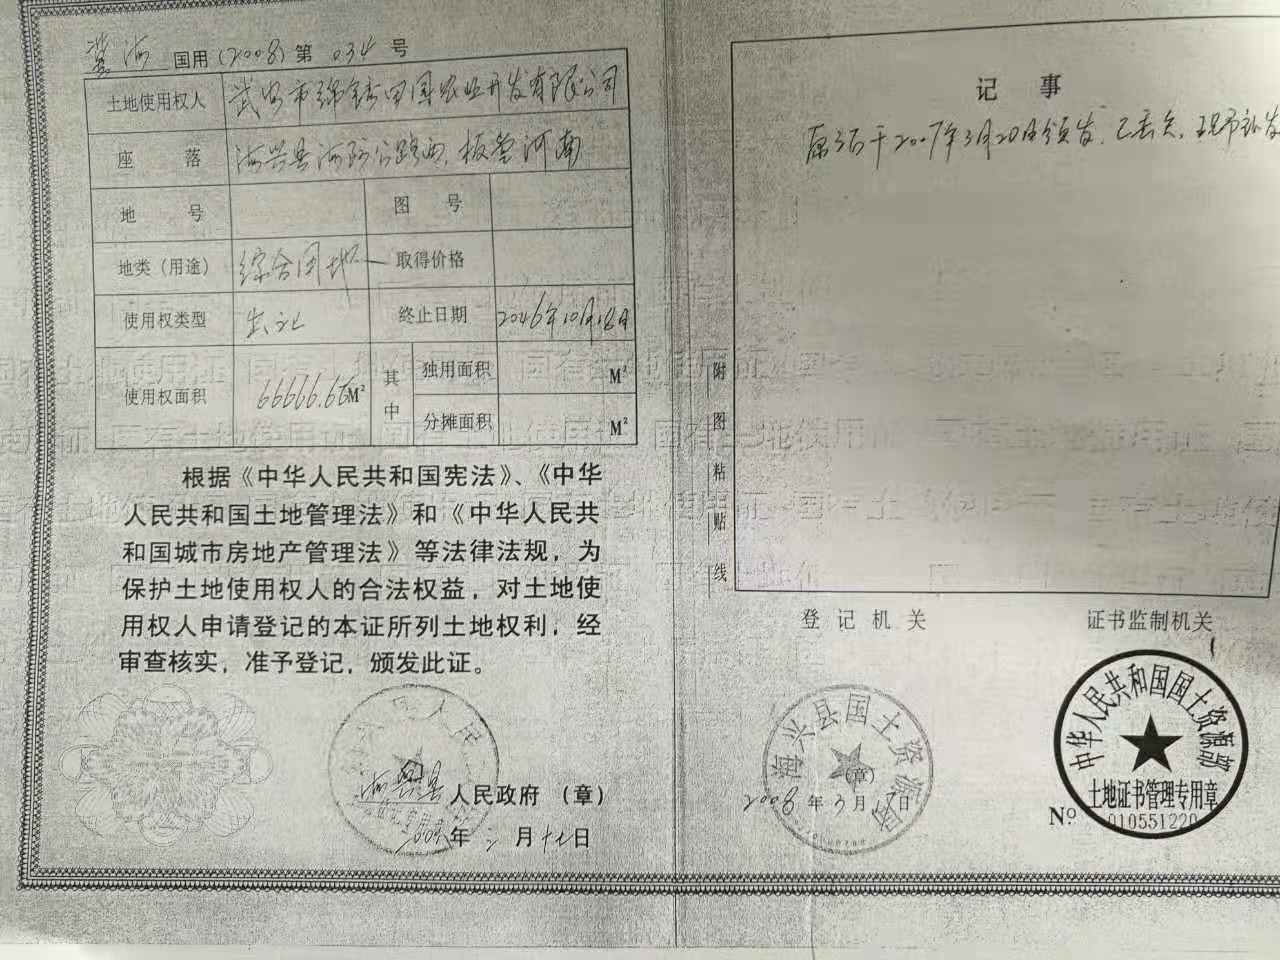 冀海国用(2008)第034号
土地使用权人 武安市锦绣田园农业开发有限公司
座落 海兴县海防公路西,板堂河南
地号 图号
地类(用途) 综合用地 取得价格
使用权类型 出让 终止日期 2046年10月18日
使用权面积 66666.66M² 其中 独用面积 M²
分摊面积 M²
根据《中华人民共和国宪法》、《中华
人民共和国土地管理法》和《中华人民共
和国城市房地产管理法》等法律法规，为
保护土地使用权人的合法权益，对土地使
用权人申请登记的本证所列土地权利，经
审查核实，准予登记，颁发此证。
海兴县人民政府（章）
2008年三月十七日
记事
原证于2007年3月20日颁发,已丢失,现予补发
附图粘贴线
登记机关
海兴县国土资源局
（章）
2008年3月17日
证书监制机关
中华人民共和国国土资源部
土地证书管理专用章
Nº 010551220